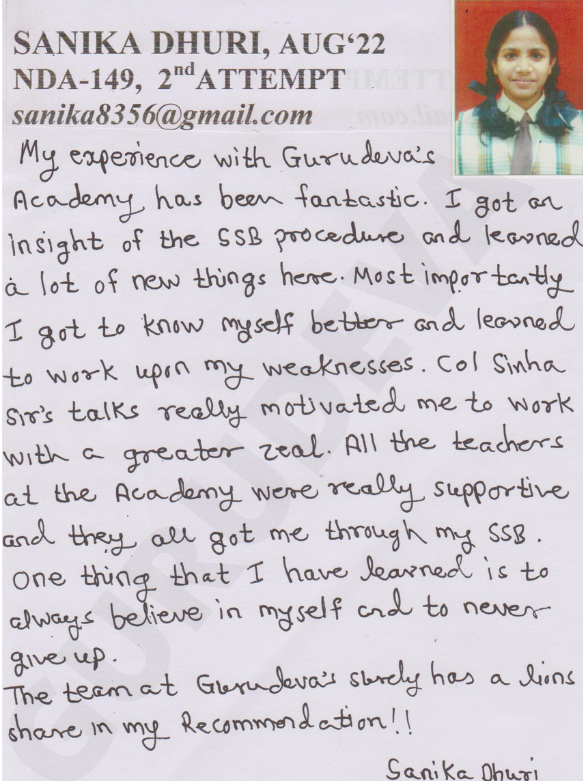 SANIKA DHURI, AUG‘22
NDA-149, 2nd ATTEMPT
sanika8356@gmail.com
My experience with Gurudeva's
Academy has been fantastic. I got an
insight of the SSB procedure and learned
a lot of new things here. Most importantly
I got to know myself better and learned
to work upon my weaknesses. Col Sinha
Sir's talks really motivated me to work
with a greater zeal. All the teachers
at the Academy were really supportive
and they all got me through my SSB.
One thing that I have learned is to
always believe in myself and to never
give up.
The team at Gurudeva's surely has a lions
share in my Recommendation!!
Sanika Dhuri
GURUDEVA